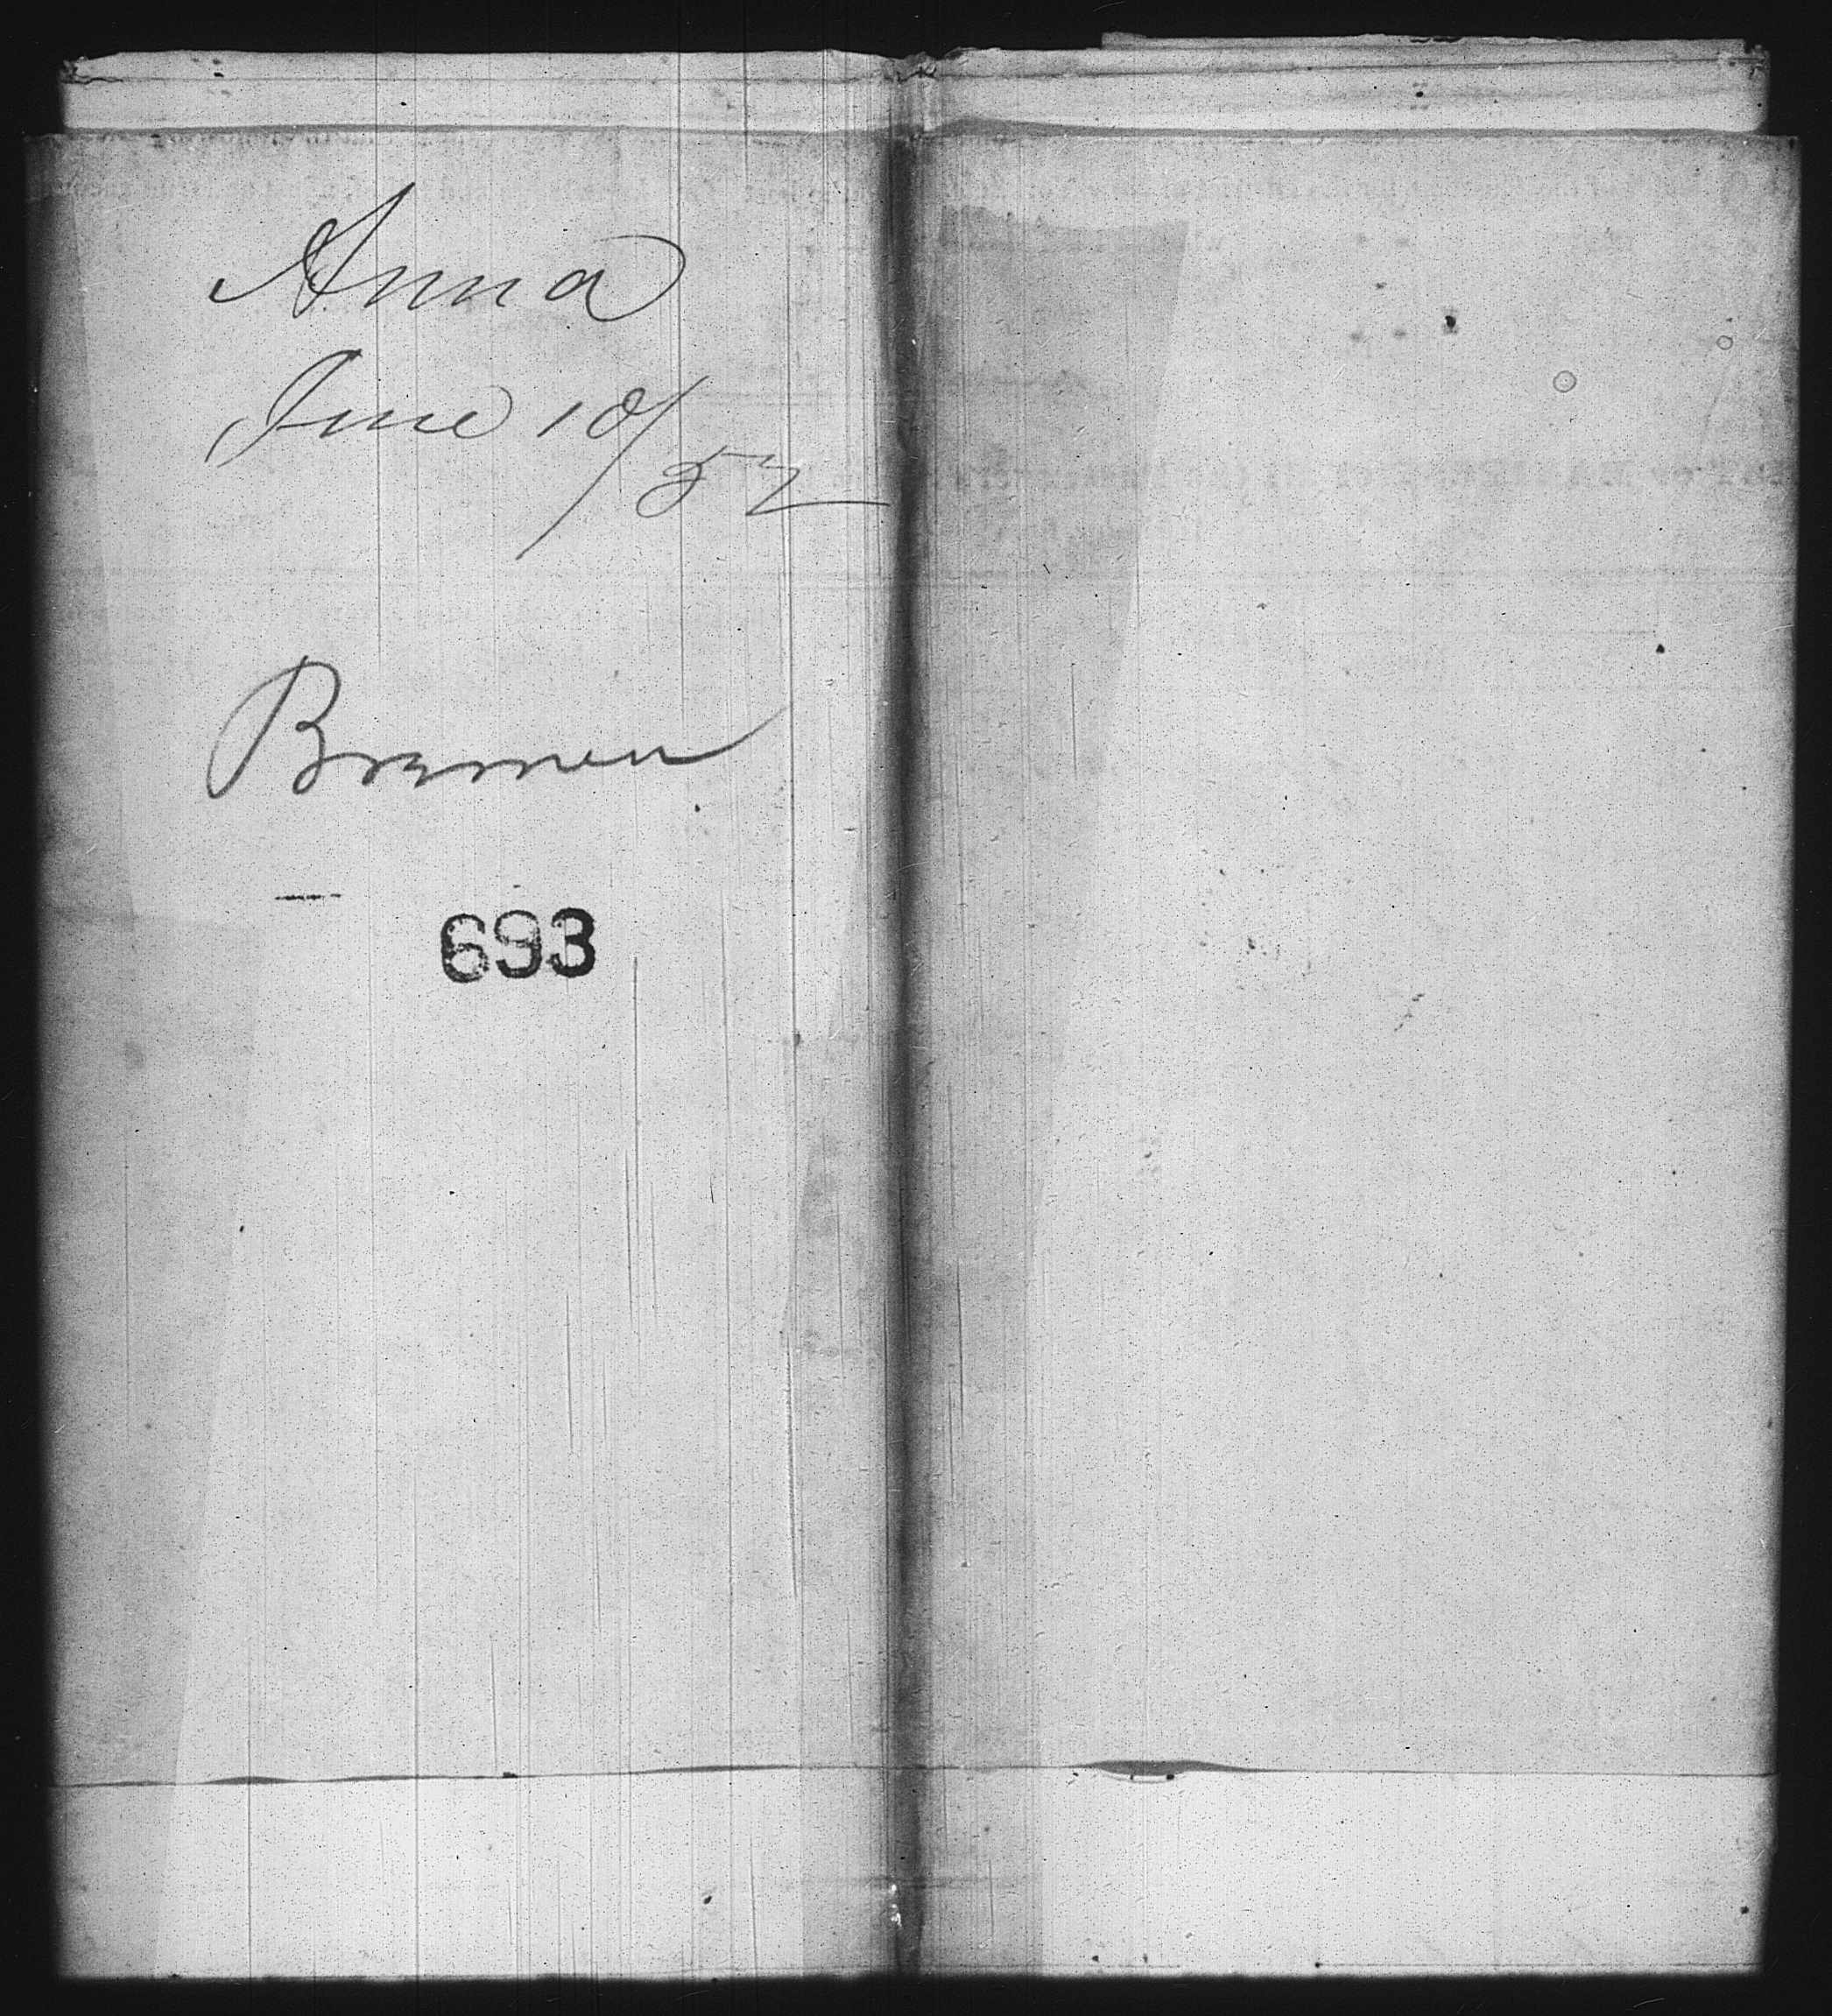 Anna
June 10/52
Bremen
693